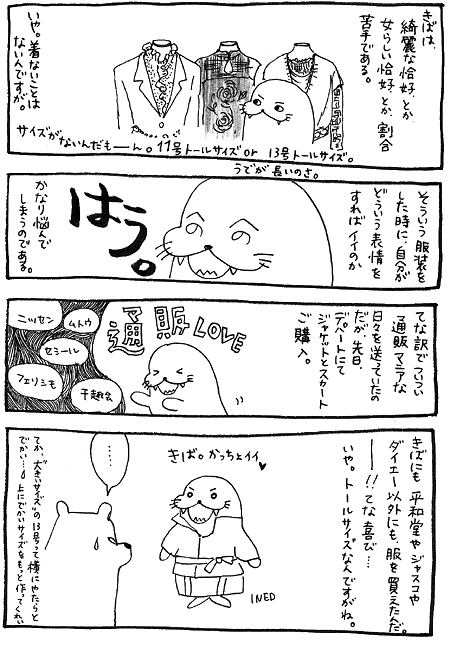 きばは、
綺麗な恰好、とか
女らしい恰好、とか、割合
苦手である。
いや。着ないことは
ないんですが。
サイズがないんだもーーん。11号トールサイズ or 13号トールサイズ。
うでが長いのさ。
そういう服装を
した時に、自分が
どういう表情を
すればイイのか
はう。
かなり悩んで
しまうのである。
てな訳でついつい
通販マニアな
日々を送っていたの
だが、先日、
デパートにて
ジャケットとスカート
ご購入。
通販LOVE
ニッセン
ムトウ
セシール
フェリシモ
千趣会
きばにも平和堂やジャスコや
ダイエー以外にも、服を買えたんだ。
――!!てな喜び…
いや。トールサイズなんですがね。
きば。かっちょイイ♥
INED
……
てか、"大きいサイズ"の13号って横にやたらと
でかい…。上にでかいサイズをもっと作ってくれい